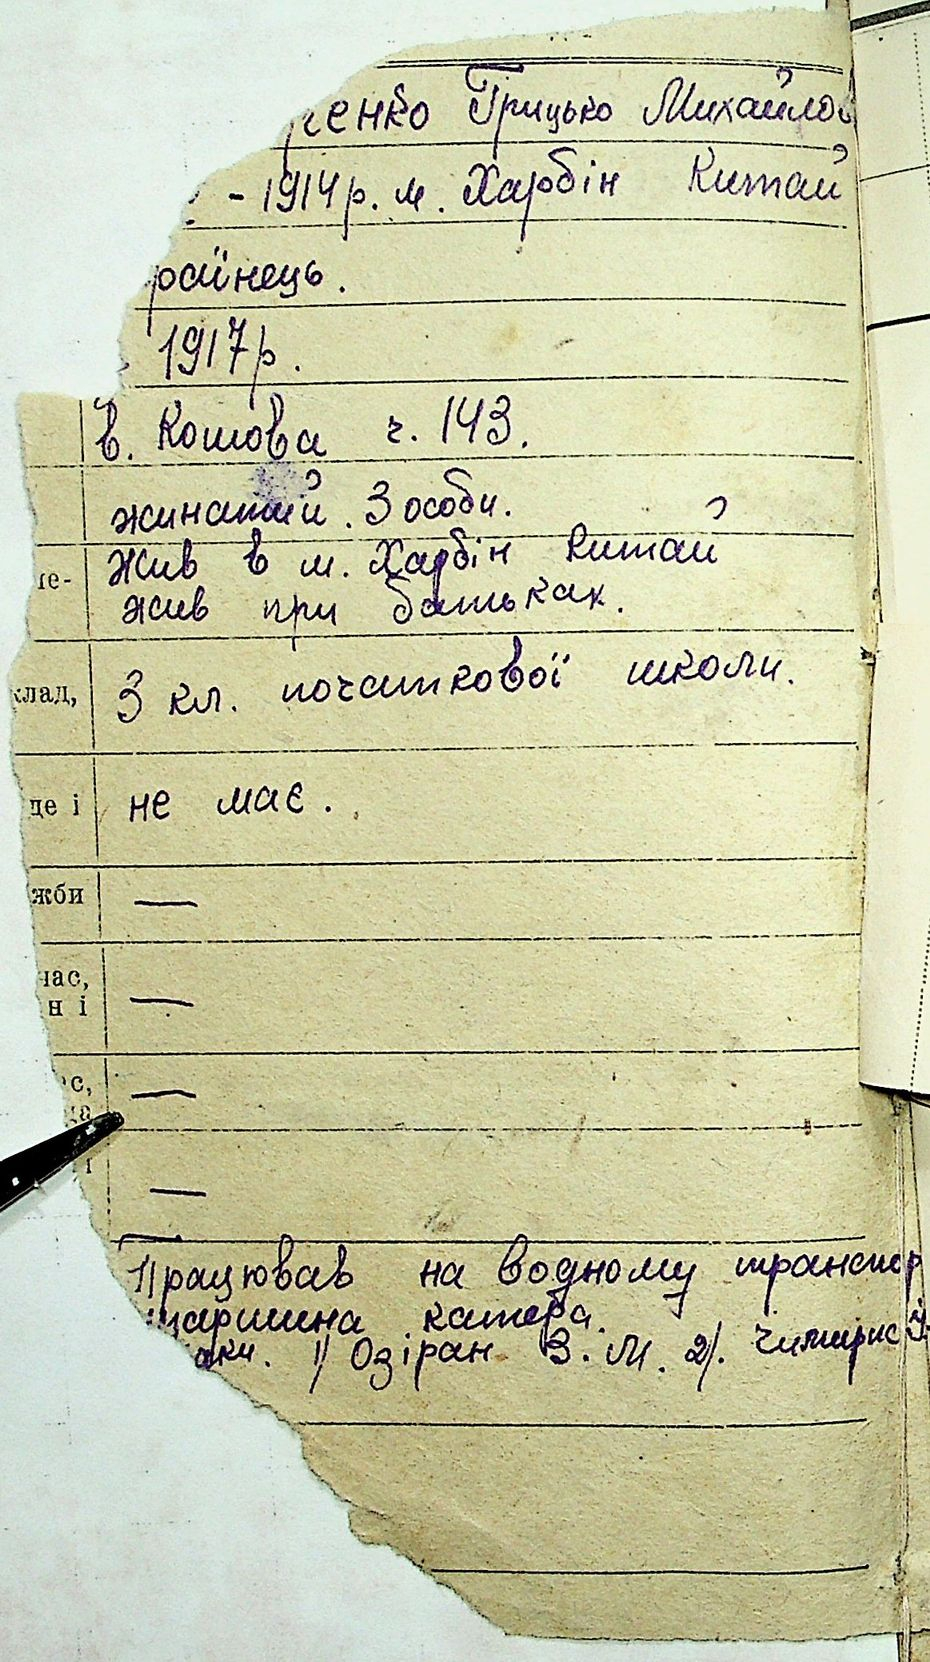 енко Грицько Михайлов
- 1914 р. м. Харбін Китай
раїнець.
1917 р.
в. Кошова ч. 143.
жинатий. 3 особи.
Жив в м. Харбін Китай
жив при батьках.
клад, 3 кл. початкової школи.
де і не має.
жби —
час,
н і —
ас, —
да
і —
Працював на водному транспор
таршина катера.
аки. 1) Озіран В. М. 2).